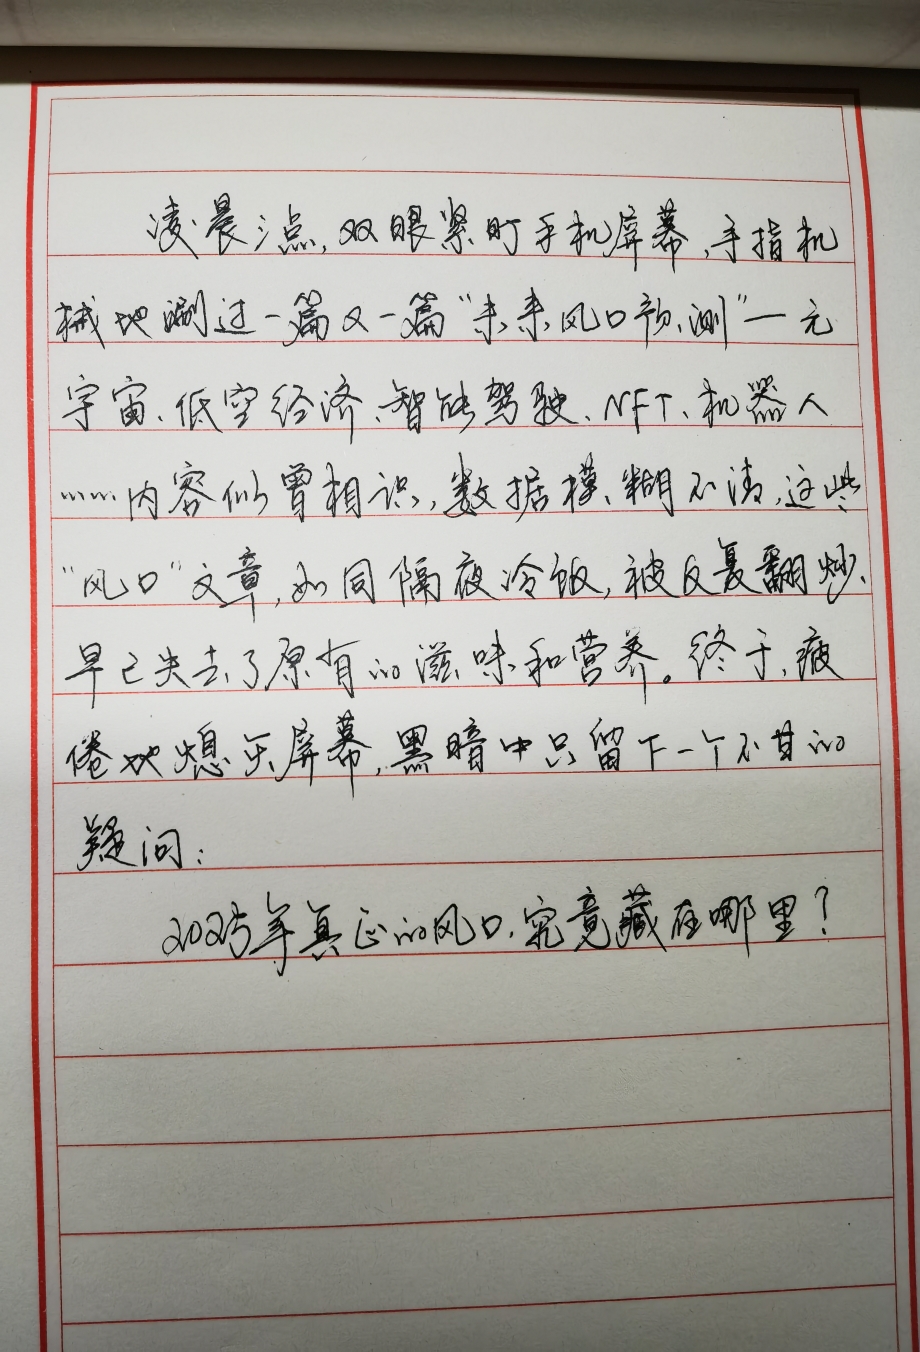 凌晨三点,双眼紧盯手机屏幕,手指机
械地涮过一篇又一篇“未来风口预测”—元
宇宙、低空经济、智能驾驶、NFT、机器人
……内容似曾相识,数据模糊不清,这些
“风口”文章,如同隔夜冷饭,被反复翻炒、
早已失去了原有的滋味和营养。终于,疲
倦地熄灭屏幕,黑暗中只留下一个不甘的
疑问:
2025年真正的风口,究竟藏在哪里?